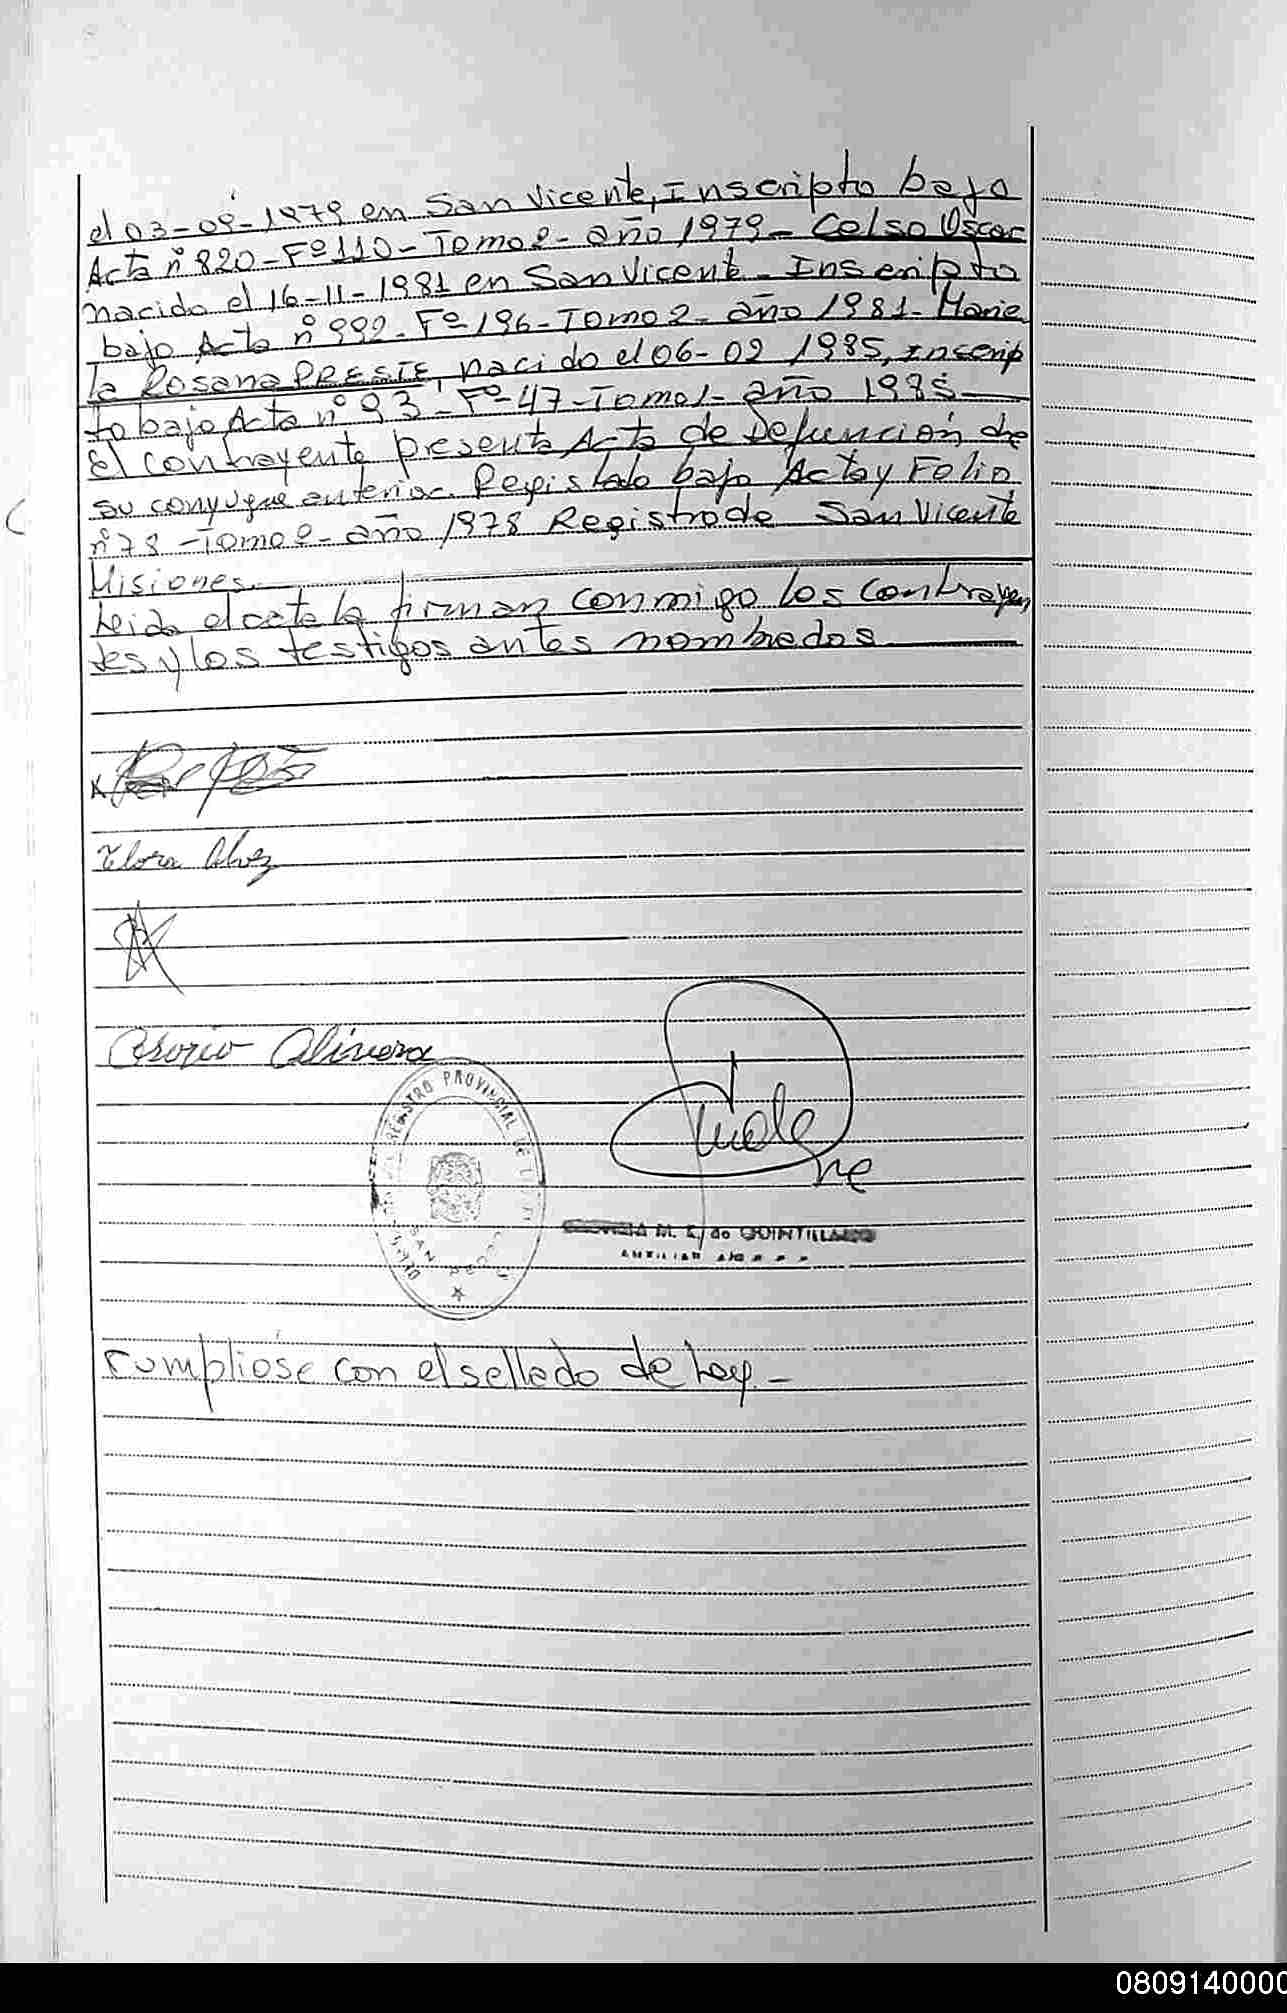 el 03-09-1979 en San Vicente, Inscripto bajo
Acta nº 820-Fº110-Tomo2-año 1979- Celso Oscar
nacido el 16-11-1981 en San Vicente- Inscripto
bajo Acta nº 992-Fº196-Tomo2-año 1981- Marie
la Rosana PRESTE, nacido el 06-02 1985, inscrip
to bajo Acta nº 93-Fº-47-Tomo1-año 1985
El contrayente presenta Acta de Defunción de
su conyugue anterior. Registrado bajo Acta y Folio
nº78 -Tomo2-año 1978 Registro de San Vicente
Misiones.
Leida el acta la firman conmigo los contrayen
tes y los testigos antes nombrados
Flora Alvez
Osorio Olivera
REGISTRO PROVINCIAL DE
SAN
M. E. de QUINTILLANO
AUXILIAR
Cumpliose con el sellado de Ley.-
0809140000